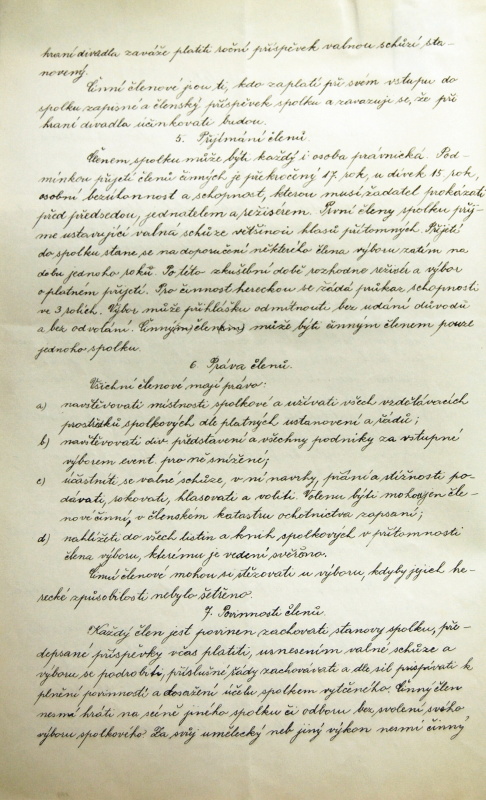 hraní divadla zaváže platiti roční příspěvek valnou schůzí sta-
novený.
Činní členové jsou ti, kdo zaplatí při svém vstupu do
spolku zápisné a členský příspěvek spolku a zavazují se, že při
hraní divadla účinkovati budou.
5. Přijímání členů.
Členem spolku může býti každý i osoba právnická. Pod-
mínkou přijetí členů činných je překročený 17. rok, u dívek 15 rok,
osobní bezúhonnost a schopnost, kterou musí žadatel prokázati
před předsedou, jednatelem a režisérem. První členy spolku přij-
me ustavující valná schůze většinou hlasů přítomných. Přijetí
do spolku stane se na doporučení některého člena výboru zatím na
dobu jednoho roku. Po této zkušební době rozhodne režisér a výbor
o platném přijetí. Pro činnost hereckou se žádá průkaz schopnosti
ve 3 rolích. Výbor může přihlášku odmítnouti bez udání důvodů
a bez odvolání. Činným člen může býti činným členem pouze
jednoho spolku
6. Práva členů.
Všichni členové mají právo:
a) navštěvovati místnosti spolkové a užívati všech vzdělávacích
prostředků spolkových dle platných ustanovení a řádů;
b) navštěvovati div. představení a všechny podniky za vstupné
výborem event. pro ně snížené;
c) účastniti se valné schůze, v ní návrhy, přání a stížnosti po-
dávati, rokovati, hlasovati a voliti. Voleni býti mohou jen čle-
nové činní, v členském katastru ochotnictva zapsaní;
d) nahlížeti do všech listin a knih spolkových v přítomnosti
člena výboru, kterému je vedení svěřeno.
Činní členové mohou si stěžovati u výboru, kdyby jejich he-
recké způsobilosti nebylo šetřeno.
7. Povinnosti členů.
Každý člen jest povinen zachovati stanovy spolku, pře-
depsané příspěvky včas platiti, usnesením valné schůze a
výboru se podrobiti, příslušné řády zachovávati a dle sil přispívati k
plnění povinností a dosažení účelu spolkem vytčeného. Činný člen
nesmí hráti na scéně jiného spolku či odboru bez svolení svého
výboru spolkového. Za svůj umělecký neb jiný výkon nesmí činný